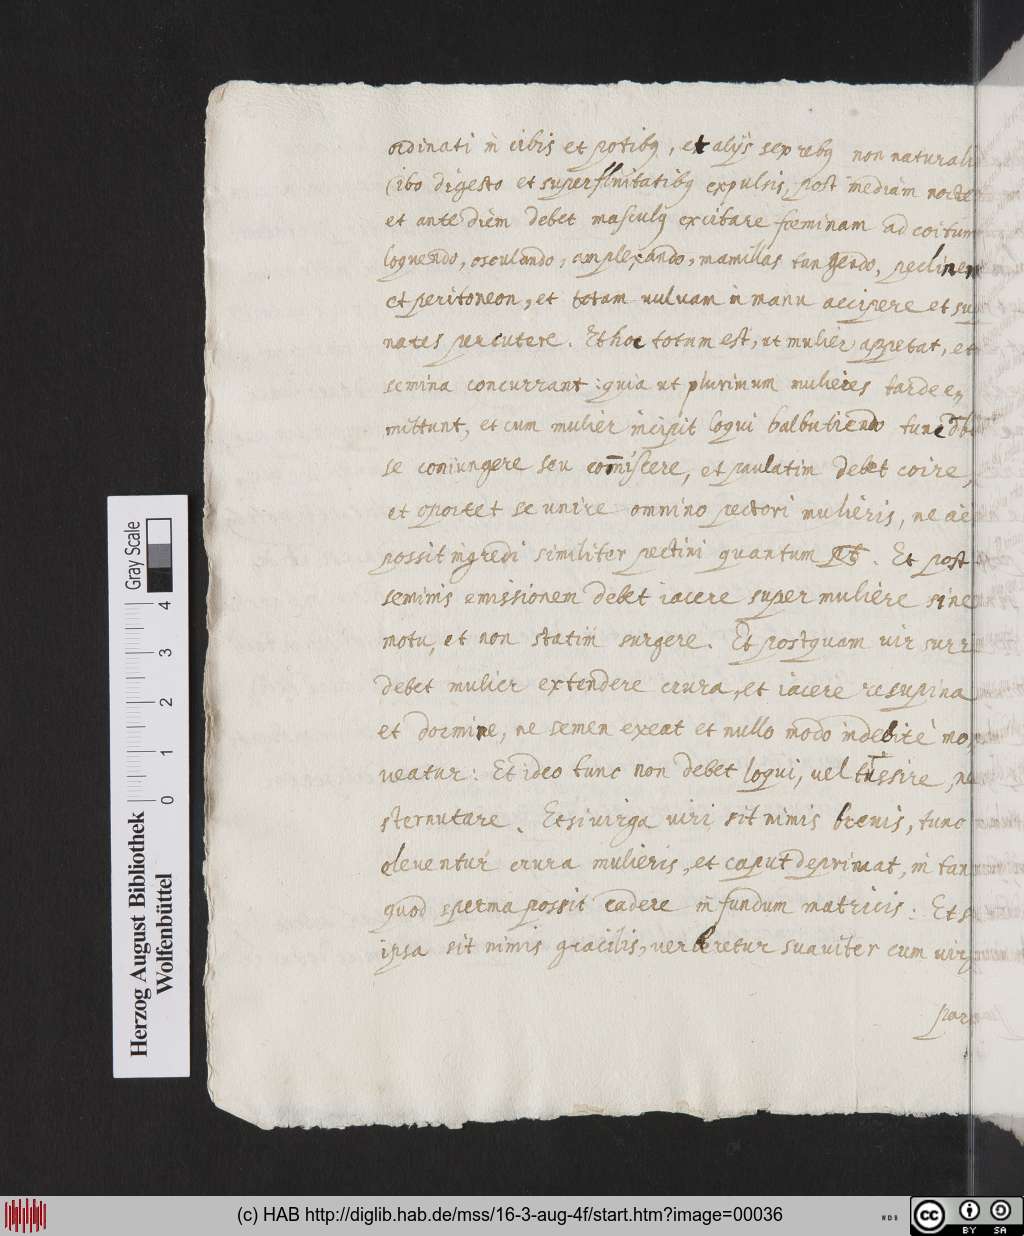 ordinati in cibis et potibꝫ, et alijs sex rebꝫ non naturali
Cibo digesto et superfluitatibꝫ expulsis, post mediam nocte
et ante diem debet masculꝫ excitare fœminam ad coitum
loquendo, osculando, amplexando, mamillas tangendo, pectinem
et peritoneon, et totam uuluam in manu accipere et su
nates percutere. Et hoc totum est, ut mulier appetat, et
semina concurrant: quia ut plurimum mulieres tarde e,
mittunt, et cum mulier incipit loqui balbutiendo tunc
se coniungere seu com̄iscere, et paulatim debet coire,
et oportet se unire omnino pectori mulieris, ne ae
possit ingredi similiter pectini quantum . Et post
seminis emissionem debet iacere super muliere sine
motu, et non statim surgere. Et postquam uir surr
debet mulier extendere crura, et iacere resupina
et dormire, ne semen exeat et nullo modo indebitè mo,
ueatur: Et ideo tunc non debet loqui, uel tussire, ne
sternutare. Et si uirga uiri sit nimis breuis, tunc
eleuentur crura mulieris, et caput deprimat, in tan
quod sperma possit cadere in fundum matricis: Et s
ipsa sit nimis gracilis, uerberetur suauiter cum uirg
par
Herzog August Bibliothek
Wolfenbüttel
0 1 2 3 4
Gray Scale
(c) HAB http://diglib.hab.de/mss/16-3-aug-4f/start.htm?image=00036
WDB
cc BY SA